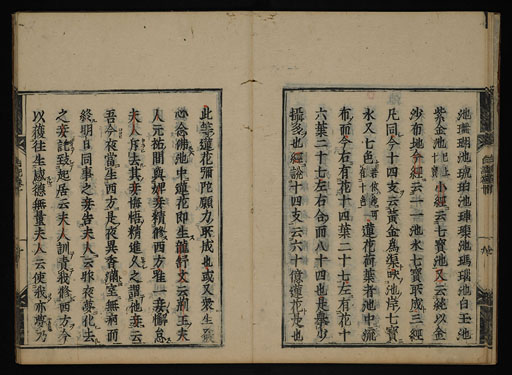 池珊瑚池琥珀池硨磲池瑪瑙池白玉池
紫金池已上十寶小經云七寶池又云純以金
沙布地今經云一一池水七寶所成三經
凡同今十四支云黃金為渠映池岸七寶
水又七色 蓮花葉者池中流
布而今右有花十四葉二十七左有花十
六葉二十七左右合而八十四也是葉少
攝多也經說十四支云六十億蓮花是也
此等蓮花彌陀願力所成也或又衆生發
心念佛池中蓮花即生龍舒文云荊王夫
人元祐間與婢妾精修西方唯一妾懈怠
夫人斥去其妾悔悟精進久之謂他妾云
吾今夜當生西方是夜異香滿室無病而
終明日同事之妾告夫人云昨夜夢化去
之妾託致起居云夫人訓責我修西方今
以獲往生感德無量夫人云使我亦夢乃